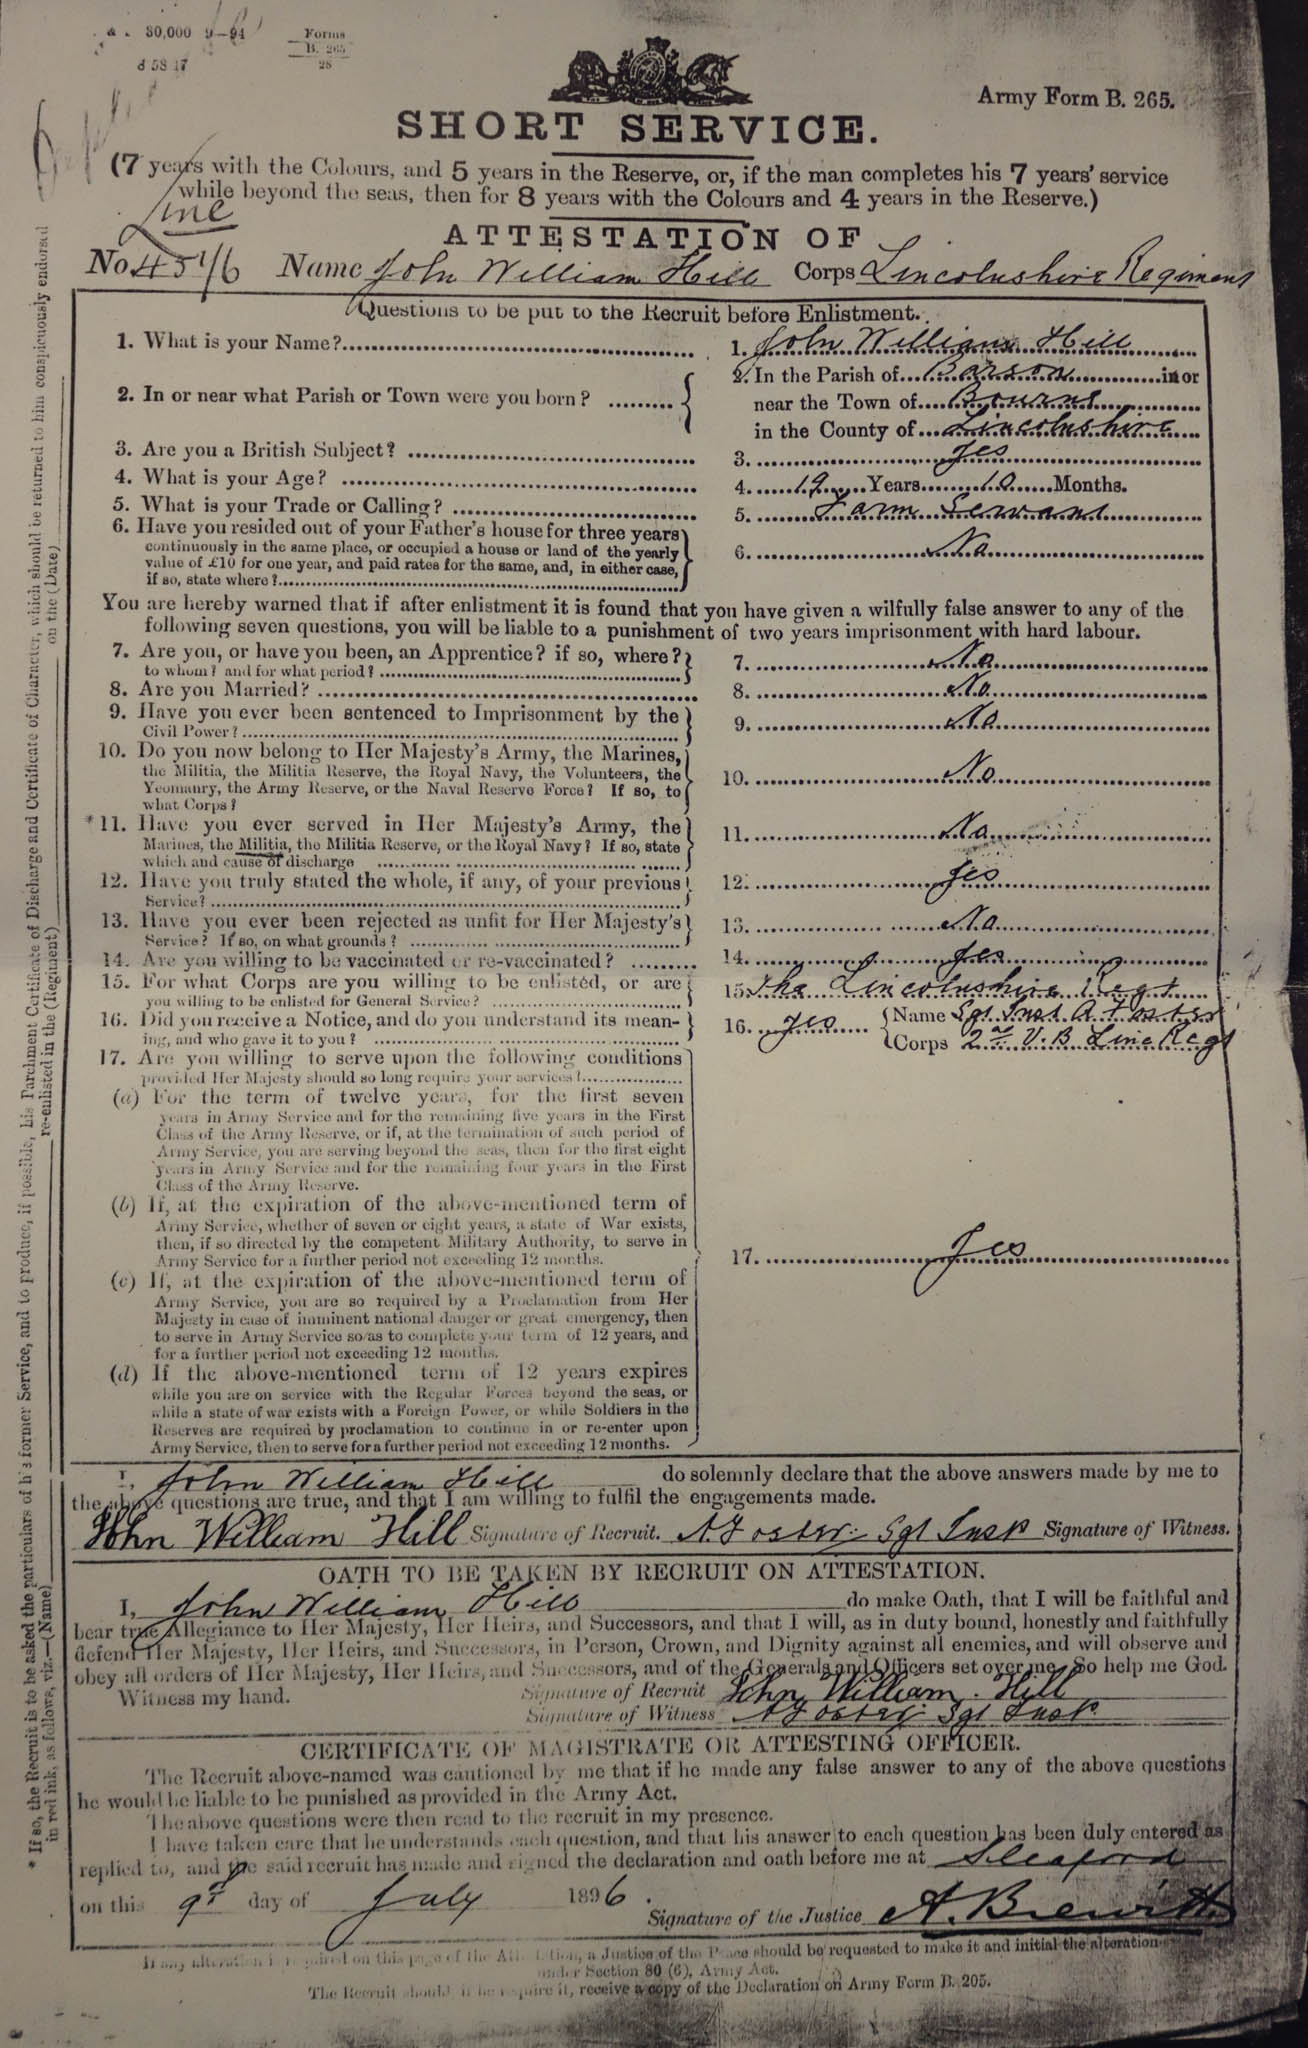 30,000 9—94 Forms
B. 265
28
Army Form B. 265.
SHORT SERVICE.
(7 years with the Colours, and 5 years in the Reserve, or, if the man completes his 7 years' service
while beyond the seas, then for 8 years with the Colours and 4 years in the Reserve.)
Linc
ATTESTATION OF
No. 45 Name John William Hill Corps Lincolnshire Regiment
Questions to be put to the Recruit before Enlistment.
1. What is your Name? 1. John William Hill
2. In or near what Parish or Town were you born? 2. In the Parish of in or
near the Town of Bourne
in the County of Lincolnshire
3. Are you a British Subject? 3. Yes
4. What is your Age? 4. 19 Years 10 Months.
5. What is your Trade or Calling? 5. Farm Servant
6. Have you resided out of your Father's house for three years
continuously in the same place, or occupied a house or land of the yearly
value of £10 for one year, and paid rates for the same, and, in either case,
if so, state where? 6. No
You are hereby warned that if after enlistment it is found that you have given a wilfully false answer to any of the
following seven questions, you will be liable to a punishment of two years imprisonment with hard labour.
7. Are you, or have you been, an Apprentice? if so, where?
to whom? and for what period? 7. No
8. Are you Married? 8. No
9. Have you ever been sentenced to Imprisonment by the
Civil Power? 9. No
10. Do you now belong to Her Majesty's Army, the Marines,
the Militia, the Militia Reserve, the Royal Navy, the Volunteers, the
Yeomanry, the Army Reserve, or the Naval Reserve Force? If so, to
what Corps? 10. No
*11. Have you ever served in Her Majesty's Army, the
Marines, the Militia, the Militia Reserve, or the Royal Navy? If so, state
which and cause of discharge 11. No
12. Have you truly stated the whole, if any, of your previous
Service? 12. Yes
13. Have you ever been rejected as unfit for Her Majesty's
Service? If so, on what grounds? 13. No
14. Are you willing to be vaccinated or re-vaccinated? 14. Yes
15. For what Corps are you willing to be enlisted, or are
you willing to be enlisted for General Service? 15. The Lincolnshire Regt
16. Did you receive a Notice, and do you understand its mean-
ing, and who gave it to you? 16. Yes Name Sgt Inst A Foster
Corps 2nd V.B Linc Regt
17. Are you willing to serve upon the following conditions
provided Her Majesty should so long require your services?
(a) For the term of twelve years, for the first seven
years in Army Service and for the remaining five years in the First
Class of the Army Reserve, or if, at the termination of such period of
Army Service, you are serving beyond the seas, then for the first eight
years in Army Service and for the remaining four years in the First
Class of the Army Reserve.
(b) If, at the expiration of the above-mentioned term of
Army Service, whether of seven or eight years, a state of War exists,
then, if so directed by the competent Military Authority, to serve in
Army Service for a further period not exceeding 12 months.
17. Yes
(c) If, at the expiration of the above-mentioned term of
Army Service, you are so required by a Proclamation from Her
Majesty in case of imminent national danger or great emergency, then
to serve in Army Service so as to complete your term of 12 years, and
for a further period not exceeding 12 months.
(d) If the above-mentioned term of 12 years expires
while you are on service with the Regular Forces beyond the seas, or
while a state of war exists with a Foreign Power, or while Soldiers in the
Reserves are required by proclamation to continue in or re-enter upon
Army Service, then to serve for a further period not exceeding 12 months.
I, John William Hill do solemnly declare that the above answers made by me to
the above questions are true, and that I am willing to fulfil the engagements made.
John William Hill Signature of Recruit. A. Foster Sgt Signature of Witness.
OATH TO BE TAKEN BY RECRUIT ON ATTESTATION.
I, John William Hill do make Oath, that I will be faithful and
bear true Allegiance to Her Majesty, Her Heirs, and Successors, and that I will, as in duty bound, honestly and faithfully
defend Her Majesty, Her Heirs, and Successors, in Person, Crown, and Dignity against all enemies, and will observe and
obey all orders of Her Majesty, Her Heirs, and Successors, and of the Generals and Officers set over me. So help me God.
Witness my hand. Signature of Recruit John William Hill
Signature of Witness A Foster Sgt
CERTIFICATE OF MAGISTRATE OR ATTESTING OFFICER.
The Recruit above-named was cautioned by me that if he made any false answer to any of the above questions
he would be liable to be punished as provided in the Army Act.
The above questions were then read to the recruit in my presence.
I have taken care that he understands each question, and that his answer to each question has been duly entered as
replied to, and the said recruit has made and signed the declaration and oath before me at Sleaford
on this 9th day of July 1896.
Signature of the Justice A.
If any alteration is required on this page of the Attestation, a Justice of the Peace should be requested to make it and initial the alteration
under Section 80 (6), Army Act.
The Recruit should, if he require it, receive a copy of the Declaration on Army Form B. 205.
* If so, the Recruit is to be asked the particulars of his former Service, and to produce, if possible, his Parchment Certificate of Discharge and Certificate of Character, which should be returned to him conspicuously endorsed
in red ink, as follows, viz.—(Name) re-enlisted in the (Regiment) on the (Date)